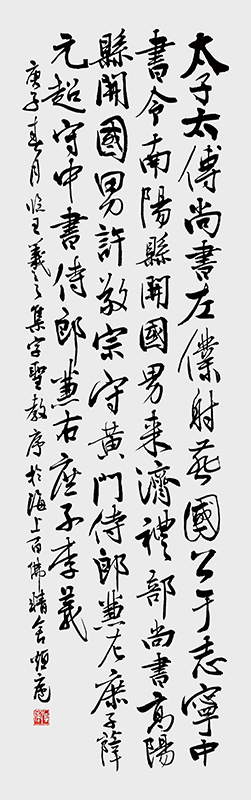 太子太傅尚書左僕射燕國公于志寧中
書令南陽縣開國男来濟禮部尚書高陽
縣開國男許敬宗守黃門侍郎兼左庶子薛
元超守中書侍郎兼右庶子李義
庚子春月臨王羲之集字聖教序於海上百佛精舍